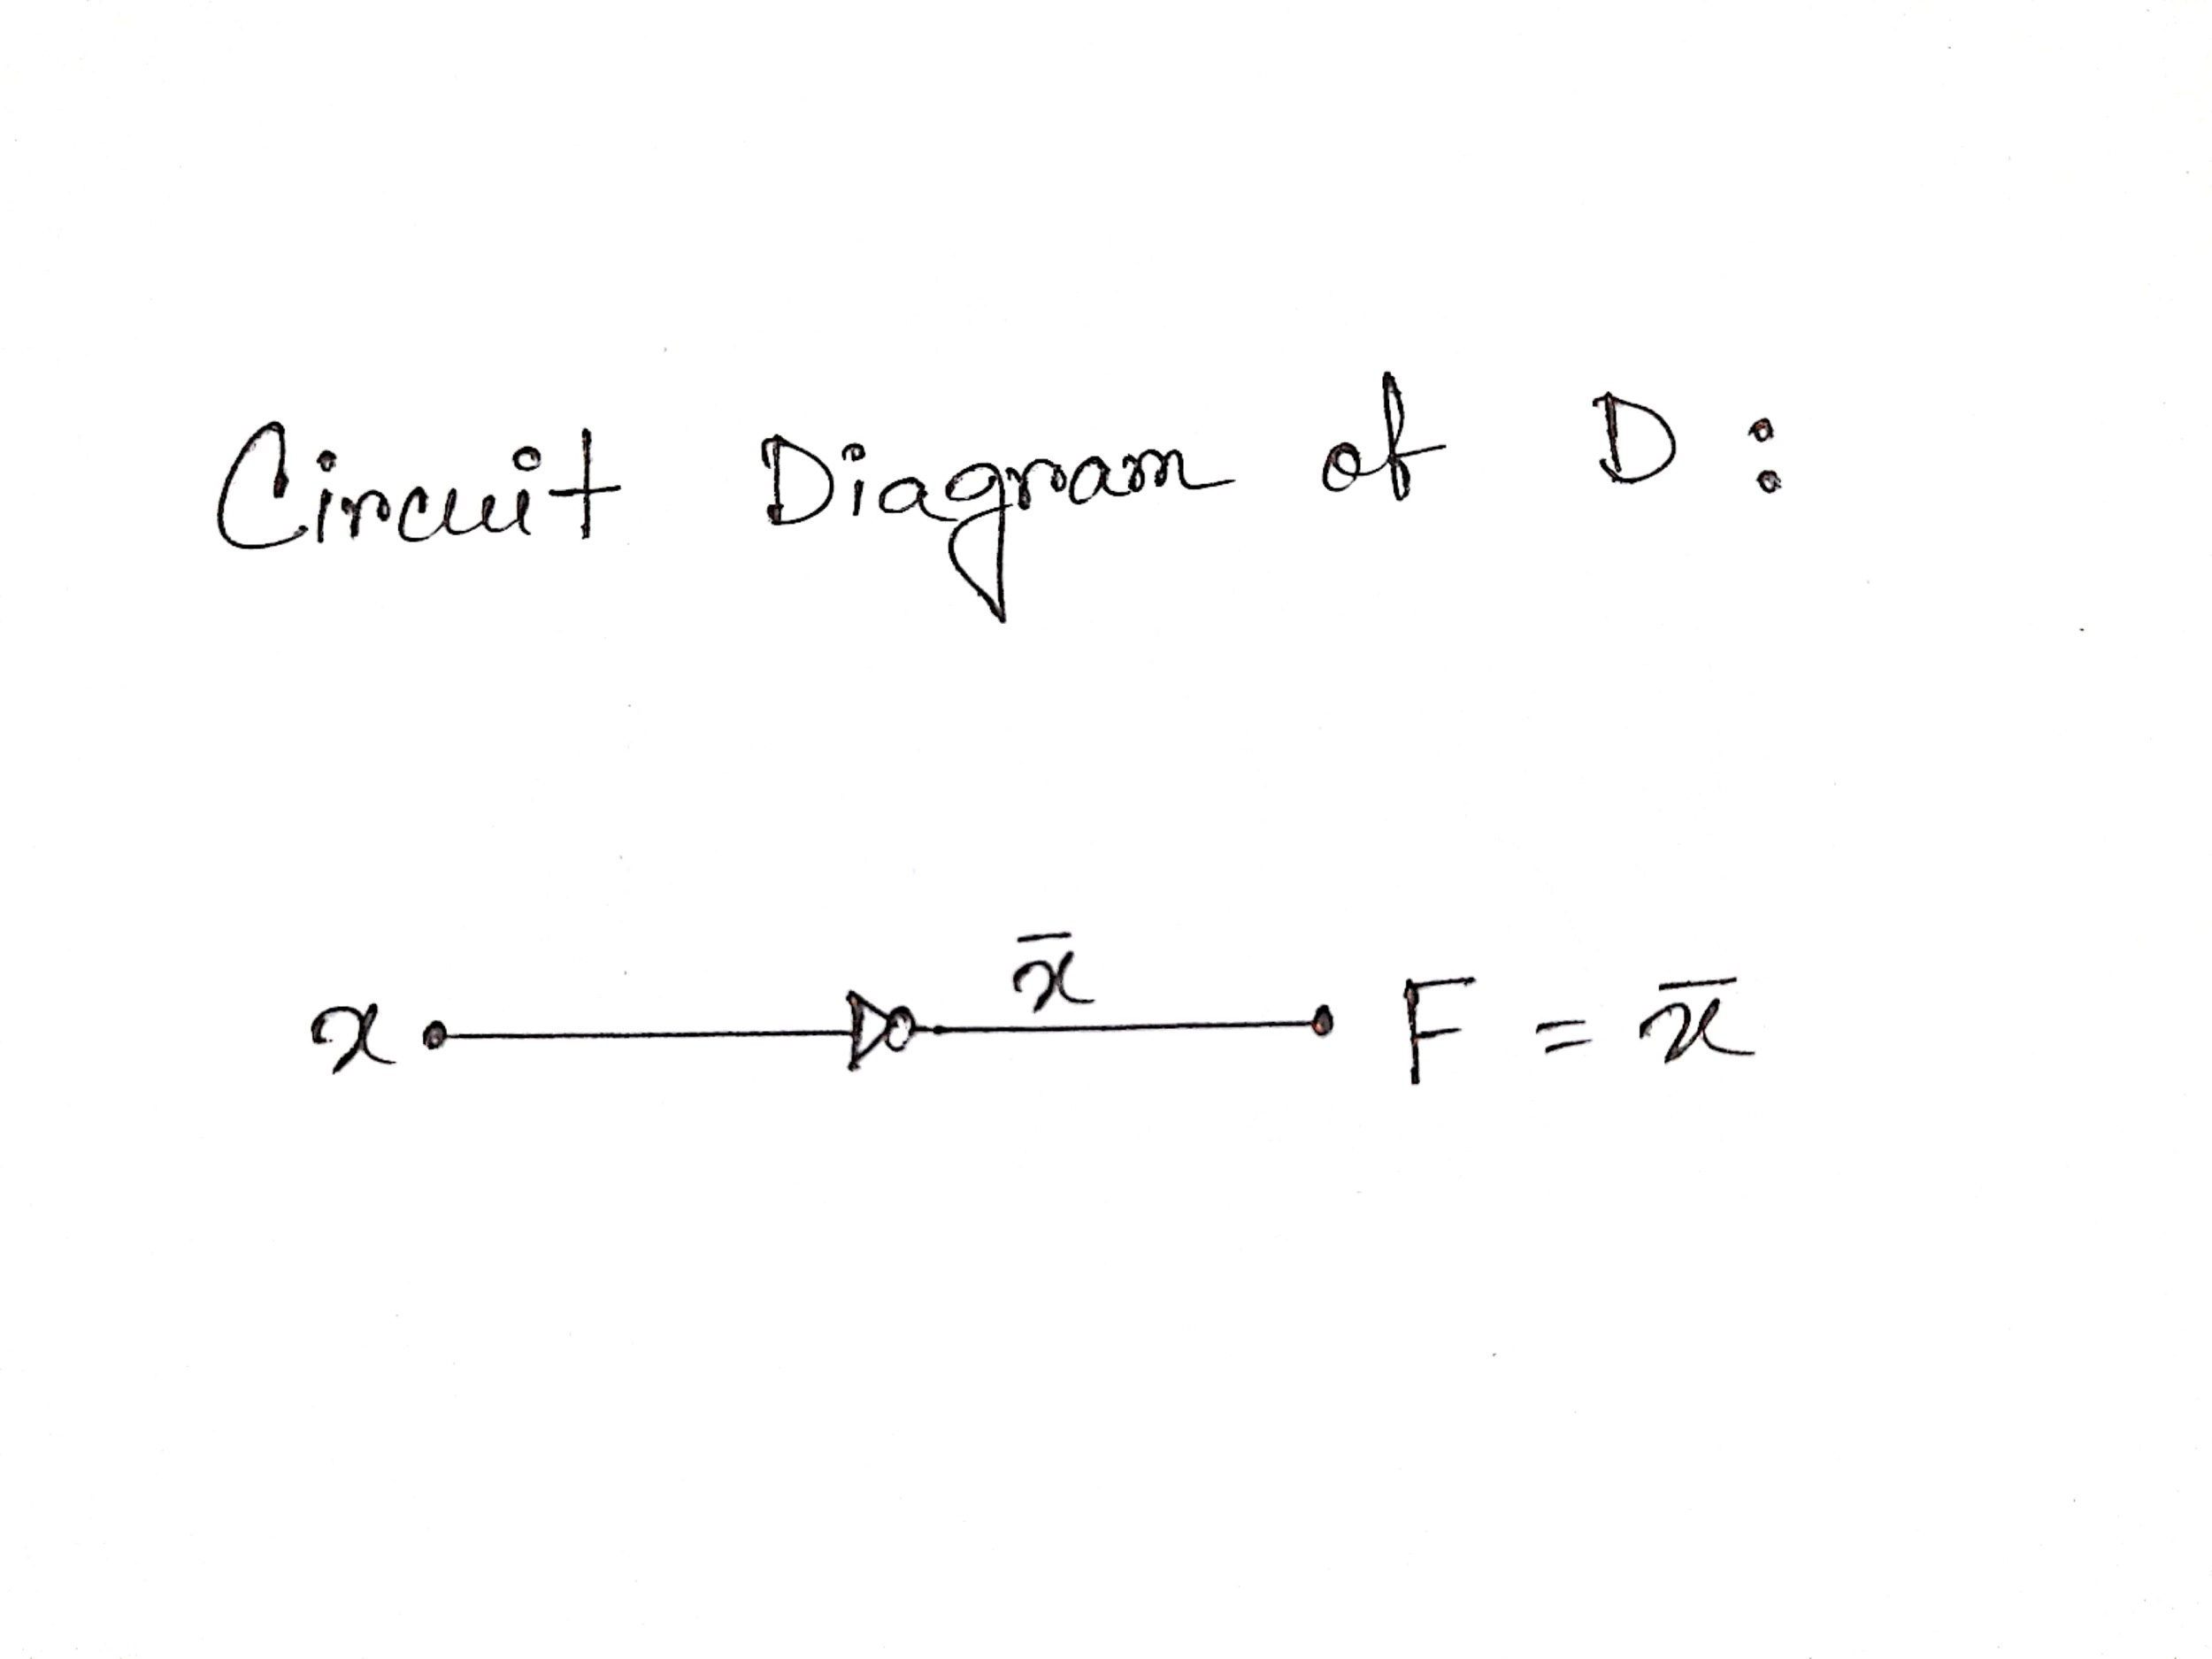 Circuit Diagram of D:
x̄
x F = x̄